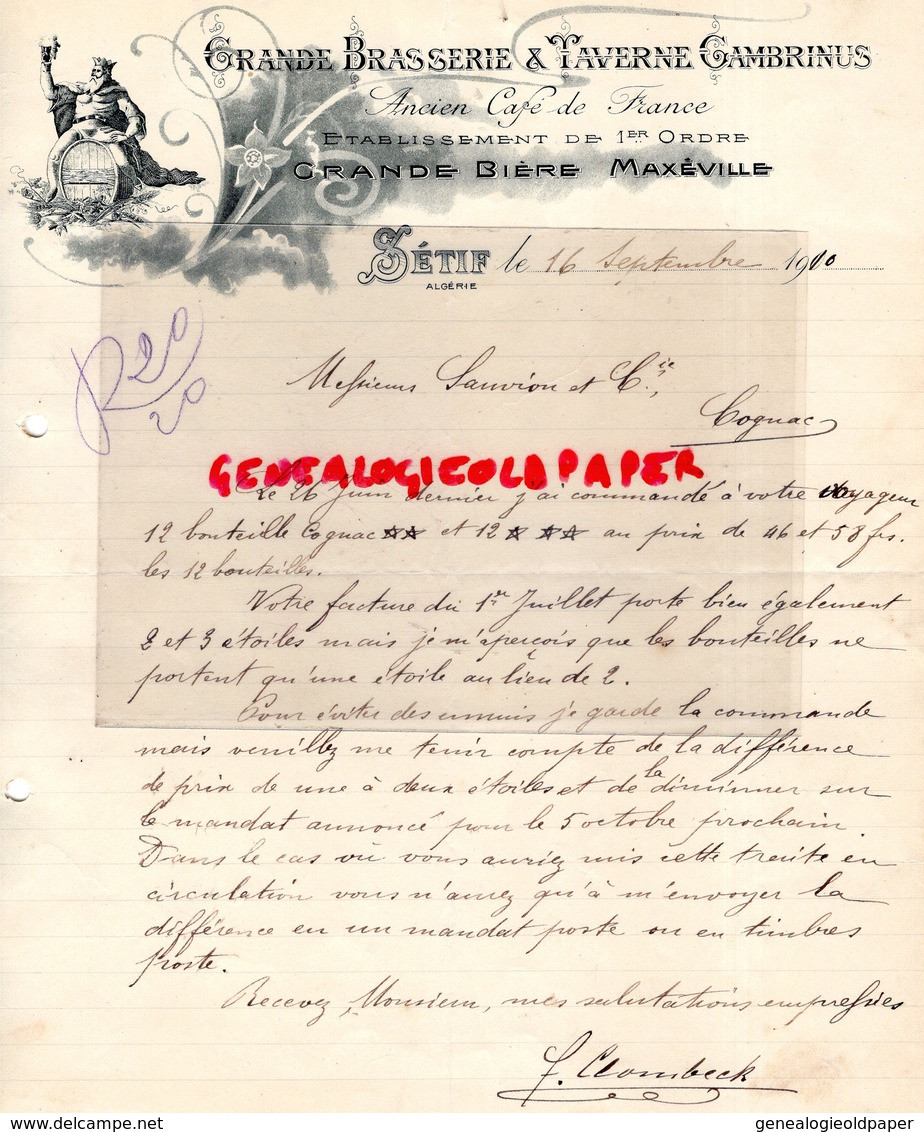 GRANDE BRASSERIE & TAVERNE GAMBRINUS
Ancien Café de France
ETABLISSEMENT DE 1ER ORDRE
GRANDE BIÈRE MAXÉVILLE
SÉTIF le 16 Septembre 1910
ALGÉRIE
R20
20
Messieurs Sauvion et Cie,
Cognac
GENEALOGIEOLDPAPER
Le 26 Juin dernier j'ai commandé à votre voyageur
12 bouteille Cognac ☆☆ et 12 ☆ ☆☆ au prix de 46 et 58 frs.
les 12 bouteilles.
Votre facture du 1er Juillet porte bien également
2 et 3 étoiles mais je m'aperçois que les bouteilles ne
portent qu'une étoile au lieu de 2.
Pour éviter des ennuis je garde la commande
mais veuillez me tenir compte de la différence
de prix de une à deux étoiles et de la diminuer sur
le mandat annoncé pour le 5 octobre prochain.
Dans le cas où vous auriez mis cette traite en
circulation vous n'aurez qu'à m'envoyer la
différence en un mandat poste ou en timbres
poste.
Recevez, Monsieur, mes salutations empressées
F. Clombeck
delcampe.net
genealogieoldpaper